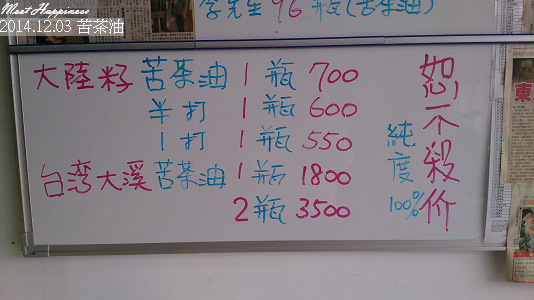 Meet Happiness
2014.12.03 苦茶油
李先生 96 瓶(苦茶油)
大陸籽 苦茶油 1 瓶 700
半打 1 瓶 600
1 打 1 瓶 550
台湾大溪 苦茶油 1 瓶 1800
2 瓶 3500
恕不殺价
純度100%
東